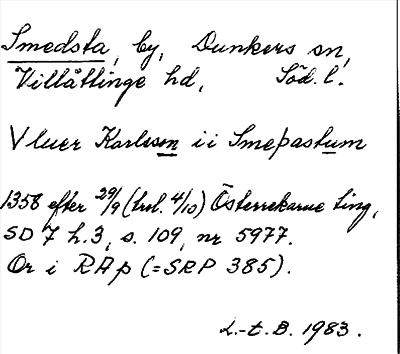 Smedsta, by, Dunkers sn,
Villåttinge hd, Söd. l.
Vluer Karlsson i i Smepastum
1358 efter 29/9 (trol. 4/10) Österrekarne ting,
SD 7 h.3, s. 109, nr 5977.
Or i RAp (=SRP 385).
L.-t. B. 1983.